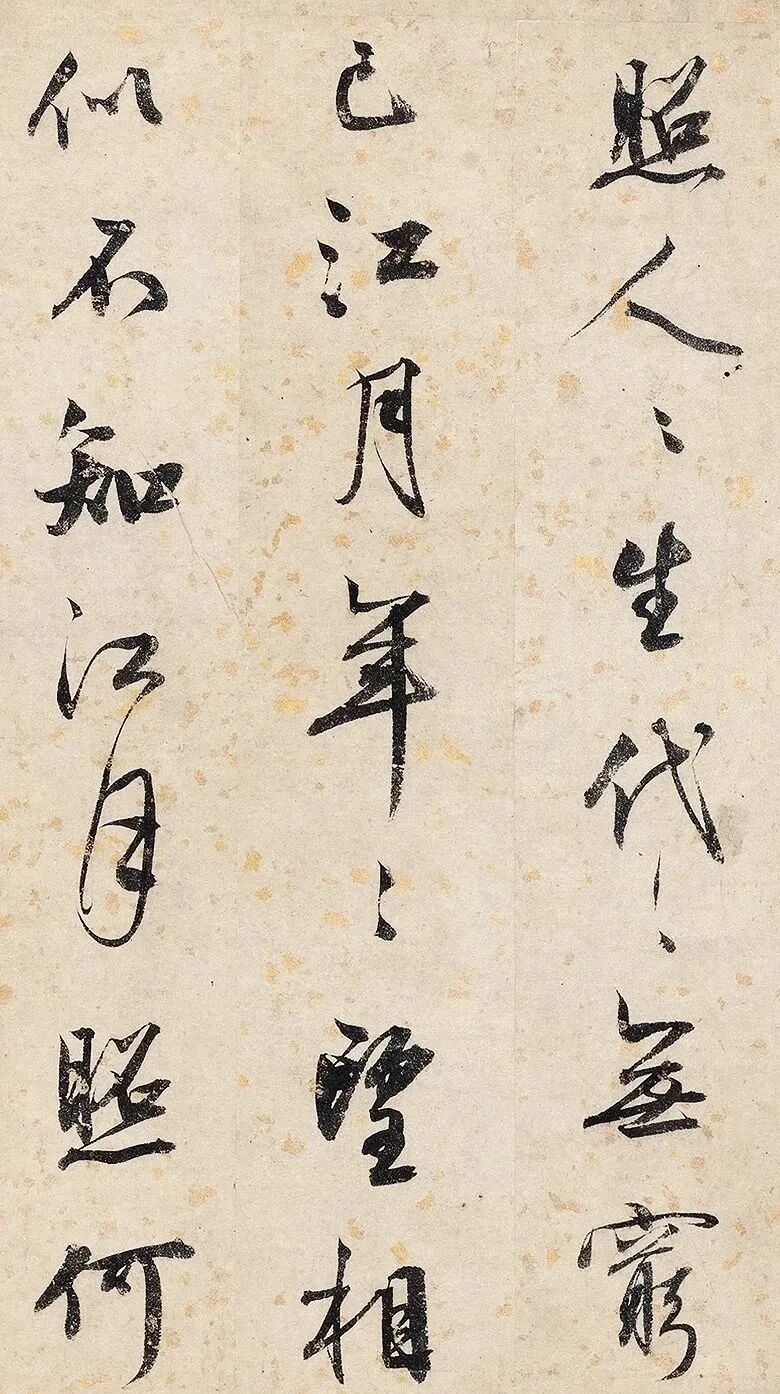 照人々生代々無窮
已江月年々望相
似不知江月照何